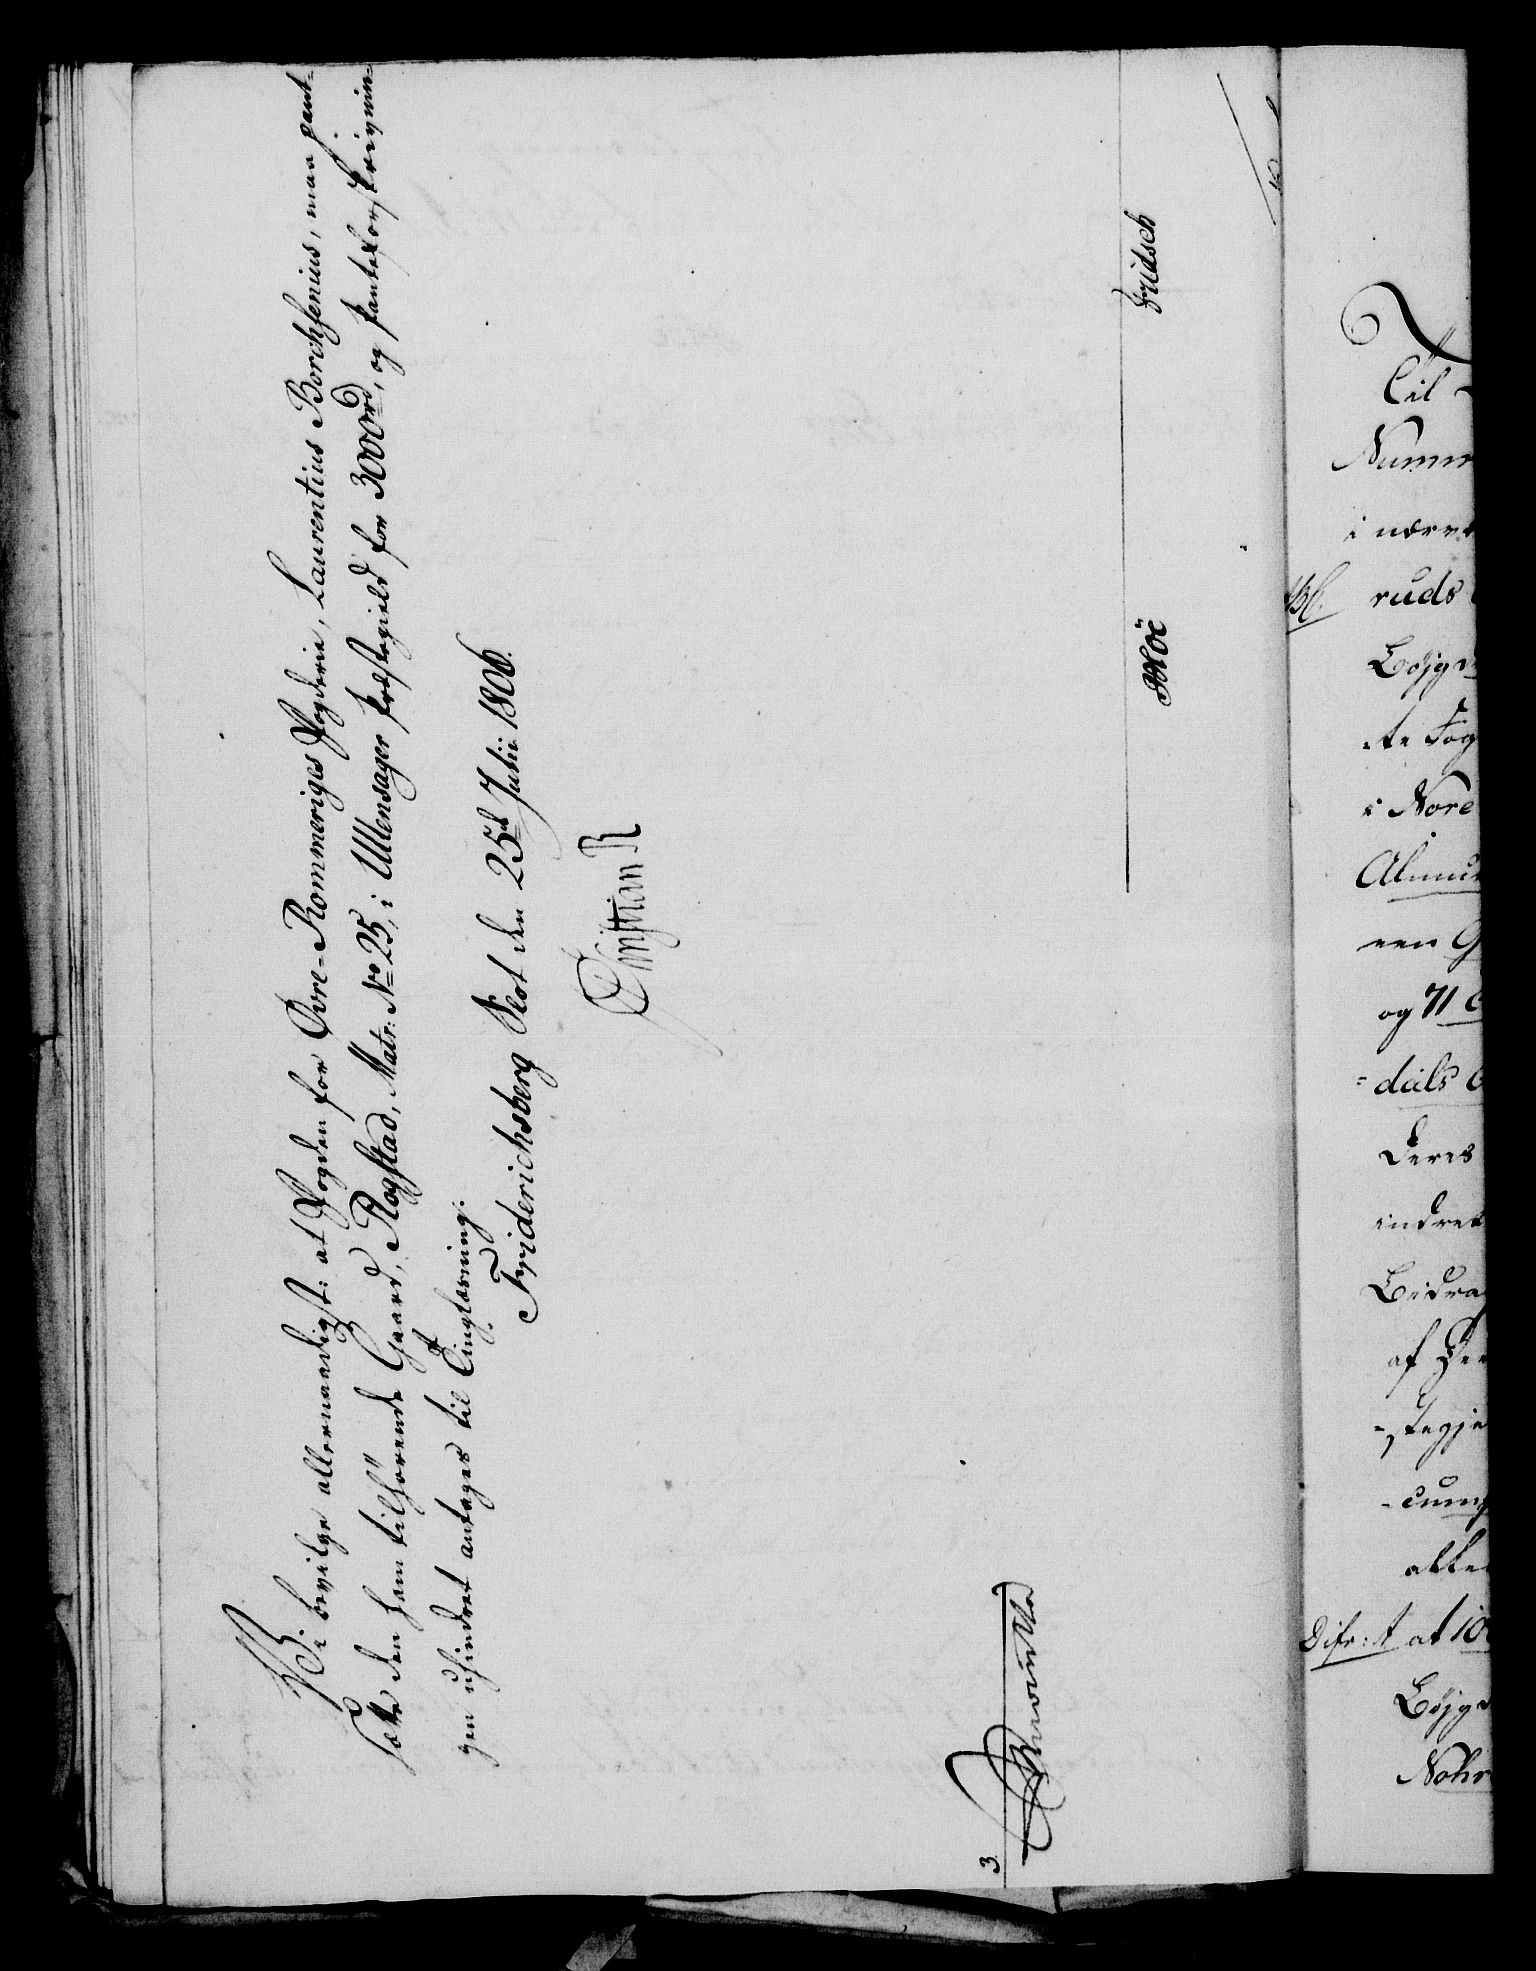 Vi bevilge allernaadigst: at Fogden for Øvre-Rommeriges Fogderie, Laurentius Borchsenius, maa pant-
sætte den ham tilhörende Gaard, Rogstad, Matr: No 25, i Ullensager Præstegield for 3000rd, og Panteforskrivnin-
gen uhindret antages til Tinglæsning.
Friderichsberg Slot den 25d Julii 1806.
Christian R
3.
fridsch
Til
Numm
i nærv
ruds
Bøjgd
te Fog
i Nore
Almu
een G
og 71
dals
Deres
indret
Bidra
af De
stegje
cum
alle
at 10
Bøjgd
Nohr